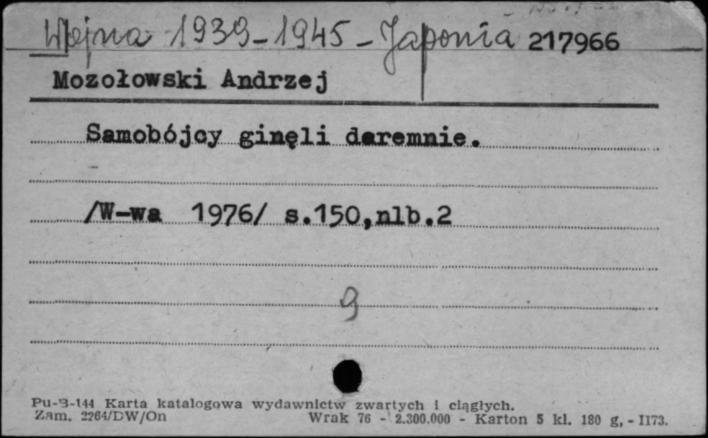 Wojna 1939-1945 - Japonia 217966
Mozołowski Andrzej
Samobójcy ginęli daremnie.
/W-wa 1976/ s.150,nlb.2
9
Pu-B-144 Karta katalogowa wydawnictw zwartych i ciągłych.
Zam. 2264/DW/On Wrak 76 - 2.300.000 - Karton 5 kl. 180 g, - I173.